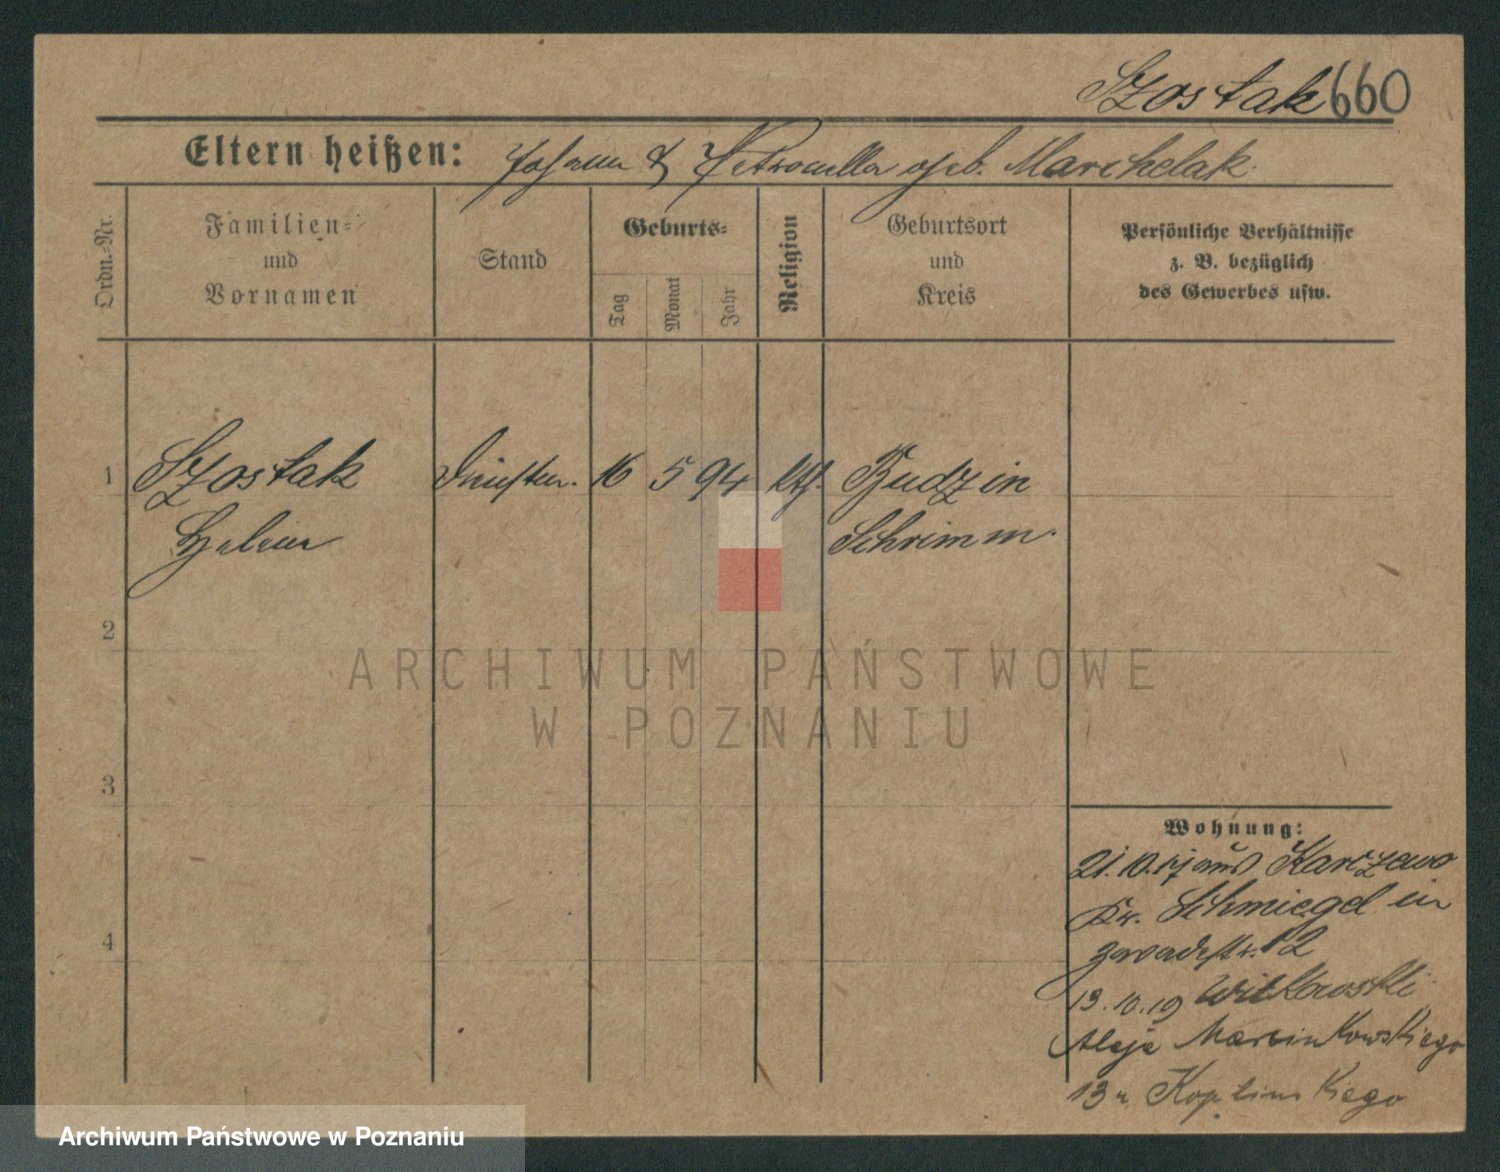 Szostak 660
Eltern heißen: Johann & Petronella geb. Marchelak
Ordn.-Nr.
Familien=
und
Vornamen
Stand
Geburts=
Tag
Monat
Jahr
Religion
Geburtsort
und
Kreis
Persönliche Verhältnisse
z. B. bezüglich
des Gewerbes usw.
1 Szostak 16 5 94 kth. Budzin
Helene Schrimm.
2
3
4
Wohnung:
21.10.17 aus Karczewo
Kr. Schmiegel in
12
13.10.19 Witkowski
Aleje Marcinkowskiego
13 u
ARCHIWUM PAŃSTWOWE
W POZNANIU
Archiwum Państwowe w Poznaniu